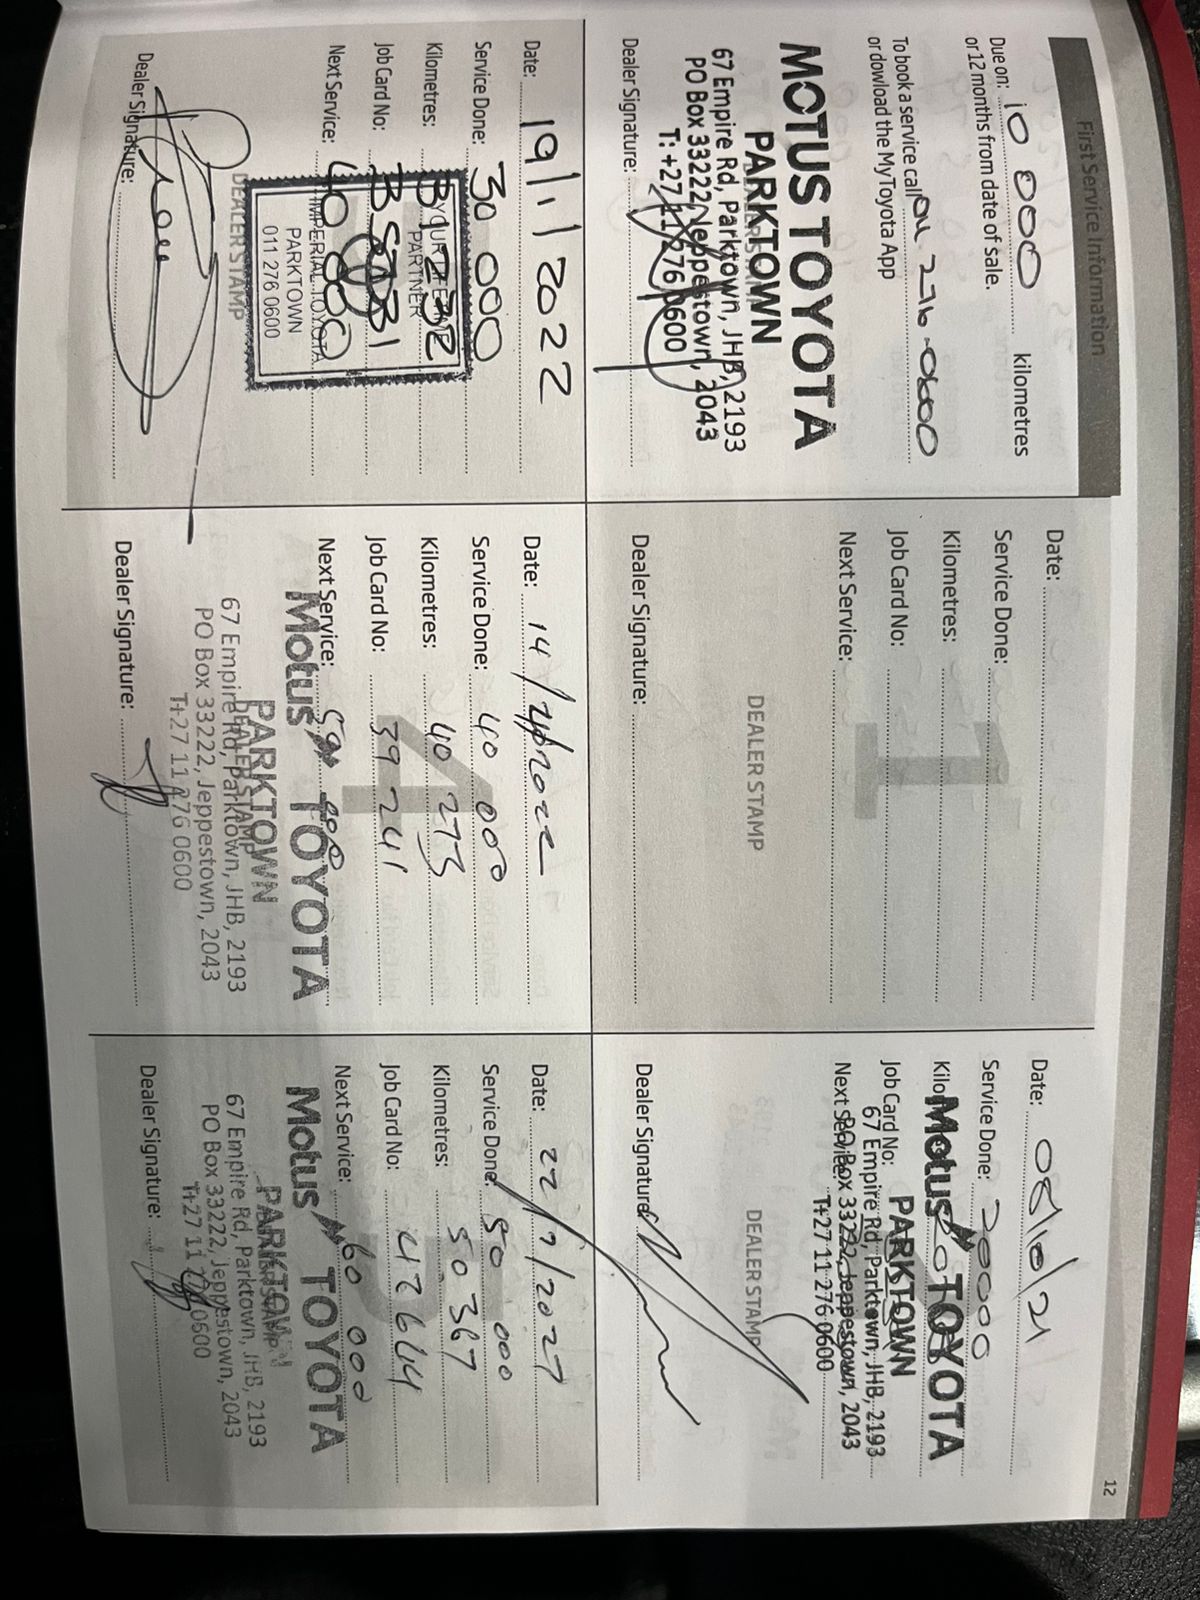 First Service Information
12
Due on: 10 000 kilometres
or 12 months from date of sale.
To book a service call 011 276-0600
or dowload the MyToyota App
MOTUS TOYOTA
PARKTOWN
67 Empire Rd, Parktown, JHB, 2193
PO Box 33222, Jeppestown, 2043
T: +27 11 276 0600
Dealer Signature:
Date:
Service Done:
Kilometres:
Job Card No:
Next Service:
1
DEALER STAMP
Dealer Signature:
Date: 08/10/21
Service Done: 20000
Motus TOYOTA
Job Card No:
PARKTOWN
67 Empire Rd, Parktown, JHB, 2193
Next Service:
PO Box 33222, Jeppestown, 2043
T+27 11 276 0600
DEALER STAMP
Dealer Signature
Date: 19/1/2022
Service Done: 30 000
Kilometres:
Job Card No:
Next Service: 40 000
PARTNER
IMPERIAL TOYOTA
PARKTOWN
011 276 0600
DEALER STAMP
Dealer Signature:
Date: 14/
Service Done: 40 000
Kilometres: 40 273
Job Card No: 39 241
Next Service:
4
Motus TOYOTA
PARKTOWN
DEALER STAMP
67 Empire Rd, Parktown, JHB, 2193
PO Box 33222, Jeppestown, 2043
T+27 11 276 0600
Dealer Signature:
Date:
Service Done: 50 000
Kilometres: 50 367
Job Card No:
Next Service: 60 000
Motus TOYOTA
PARKTOWN
67 Empire Rd, Parktown, JHB, 2193
PO Box 33222, Jeppestown, 2043
Dealer Signature: